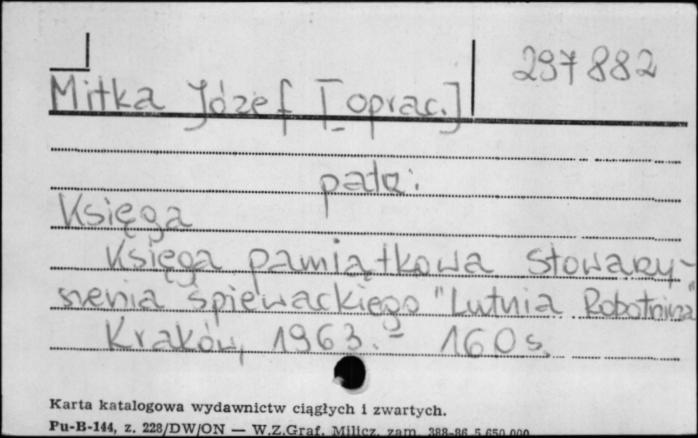 297882
Mitka Józef [oprac.]
patrz:
Księga
Księga pamiątkowa stowarzy-
szenia śpiewackiego "Lutnia Robotnicza"
Kraków, 1963. - 160 s.
Karta katalogowa wydawnictw ciągłych i zwartych.
Pu-B-144, z. 228/DW/ON — W.Z.Graf. Milicz, zam. 388-86 5.650.000